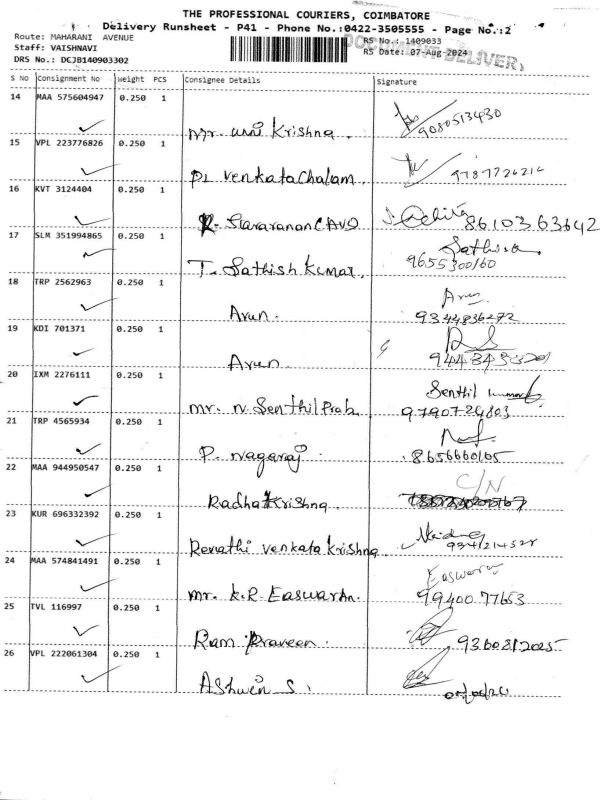 THE PROFESSIONAL COURIERS, COIMBATORE
Delivery Runsheet - P41 - Phone No.:0422-3505555 - Page No.:2
Route: MAHARANI AVENUE
RS No.: 1409033
Staff: VAISHNAVI
RS Date: 07-Aug-2024
DRS No.: DCJB140903302
DOCUMENT DELIVERY
S No Consignment No Weight PCS Consignee Details Signature
14 MAA 575604947 0.250 1
Mr. Krishna. 9080513430
15 VPL 223776826 0.250 1
Venkatachalam 9787726214
16 KVT 3124404 0.250 1
8610363642
17 SLM 351994865 0.250 1
T. Sathish Kumar. Sathish 9655300160
18 TRP 2562963 0.250 1
Arun. Arun 9344836272
19 KDI 701371 0.250 1
Arun.
20 IXM 2276111 0.250 1
Mr. N. Senthil Prab Senthil 9790724803
21 TRP 4565934 0.250 1
P. Nagaraj 8656660105
22 MAA 944950547 0.250 1
Radha Krishna. C/N
23 KUR 696332392 0.250 1
Revathi Venkata Krishna
24 MAA 574841491 0.250 1
Mr. K.R. Easwaran. Easwaran 9940077653
25 TVL 116997 0.250 1
Ram Praveen. 9360812025
26 VPL 222061304 0.250 1
Ashwin S.